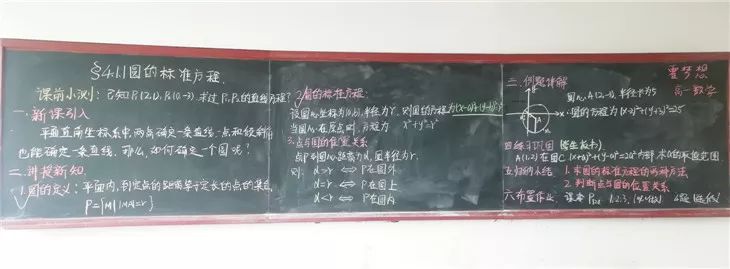 §4.1.1圆的标准方程.
课前小测: 已知P₁(2,1), P₂(0,-3), 求过P₁,P₂的直线方程?
一.新课引入
平面直角坐标系中,两点确定一条直线,一点和倾斜角
也能确定一条直线.那么,如何确定一个圆呢?
二.讲授新知
1.圆的定义: 平面内,到定点的距离等于定长的点的集合.
P={M||MA|=r}
2.圆的标准方程:
设圆心坐标为(a,b),半径为r.则圆的方程为(x-a)²+(y-b)²=r²
当圆心在原点时,方程为 x²+y²=r²
3.点与圆的位置关系
点P到圆心距离为d,圆半径为r.
则: d>r ⟺ P在圆外
d=r ⟺ P在圆上
d<r ⟺ P在圆内
三.例题详解
A
圆的方程为
四.练习巩固 (学生板书).
A(1,2)在圆C:(x+a)²+(y-a)²=2a²内部,求a的取值范围.
五.归纳小结 1.求圆的标准方程的两种方法
2.判断点与圆的位置关系
六.布置作业: 课本
高一数学